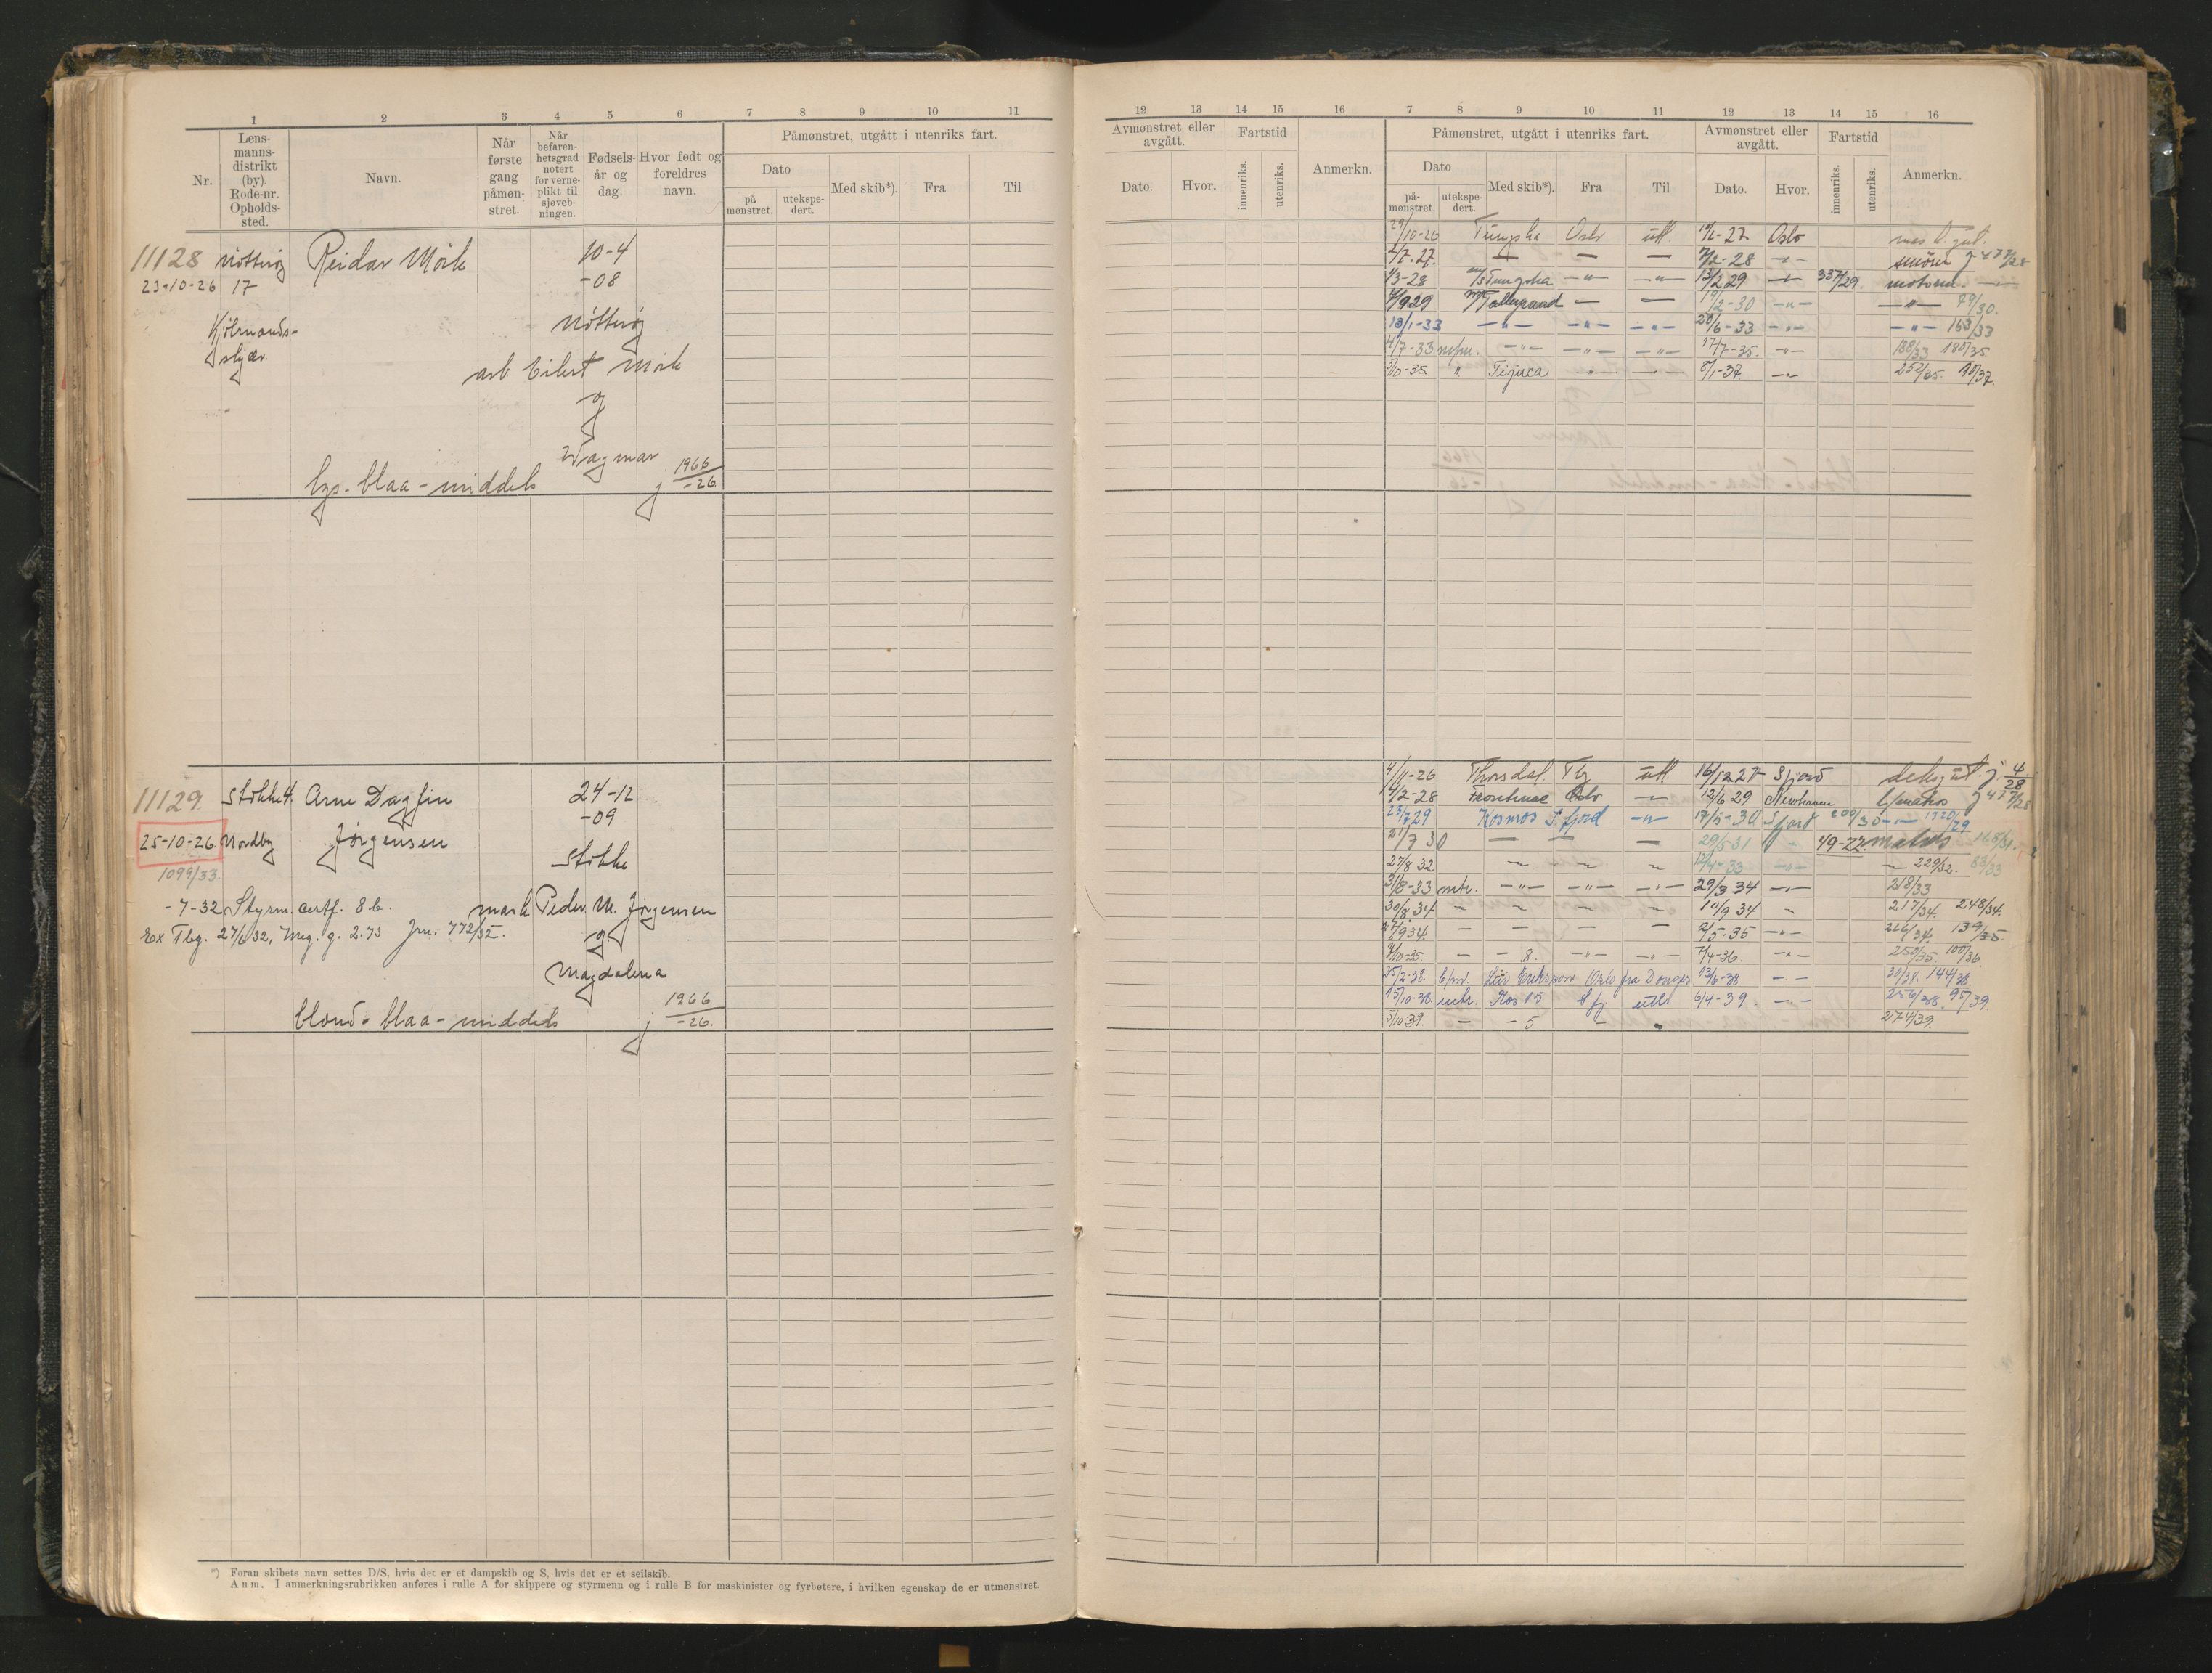 1 2 3 4 5 6 7 8 9 10 11
Nr. Lens-manns-distrikt (by). Rode-nr. Opholds-sted. Navn. Når første gang påmøn-stret. Når befaren-hetsgrad notert for verne-plikt til sjøveb-ningen. Fødsels-år og dag. Hvor født og foreldres navn.
Påmønstret, utgått i utenriks fart.
Dato Med skib*). Fra Til
på mønstret. utekspe-dert.
11128 Nøtterøy Reidar Mørk 10-4
23-10-26 17 -08
Kjølmands- Nøtterøy
skjær. arb. Eilert Mørk
g
Dagmar
lys - blaa - middels j 1966/-26
11129 Stokke 4. Arne Dagfin 24-12
25-10-26 Nordby. Jørgensen -09
Stokke
1099/33.
-7-32 Styrm. certf. 86. mask Peder M. Jørgensen
Ex Tbg. 27/6 32, Meg. g. 2.73 Jrn. 772/32. g
Magdalena
blond - blaa - middels j 1966/-26.
*) Foran skibets navn settes D/S, hvis det er et dampskib og S, hvis det er et seilskib.
Anm. I anmerkningsrubrikken anføres i rulle A for skippere og styrmenn og i rulle B for maskinister og fyrbøtere, i hvilken egenskap de er utmønstret.
12 13 14 15 16 7 8 9 10 11 12 13 14 15 16
Avmønstret eller avgått. Fartstid Anmerkn. Påmønstret, utgått i utenriks fart. Avmønstret eller avgått. Fartstid Anmerkn.
Dato. Hvor. innenriks. utenriks. Dato Med skib*). Fra Til Dato. Hvor. innenriks. utenriks.
på-mønstret. utekspe-dert.
29/10-26 Tungsha Oslo utl. -27 Oslo
2/7-27. — — — -28 -"-
1/3-28 M/S Tungsha -"- -"- 13/2 29 -"- 337/29. motorm.
4/9 29 M/S Talleyrand — — 19/2-30 -"- -"- 79/30.
13/1-33 -"- -"- -"- 20/6-33 -"- -"- 163/33
4/7-33 mpm. -"- -"- -"- 17/7-35. -"- 188/33 180/35
3/10-35 " Tijuca -"- -"- 8/1-37. -"- 252/35. 10/37.
4/11-26 Thorsdal. Tbg utl. 16/12 27 Sfjord deksgut. j 4/28
14/2-28 Frontenac Oslo — 12/6 29 Newhaven l/matros
23/7 29 Kosmos S. fjord -"- 17/5-30 Sfjord 200/30 1320/29
21/7 30 — — — 29/5-31 " 49-22 matros 168/31.
27/8 32 " " " 12/4-33 -"- " 229/32. 83/33
31/8-33 mtr. -"- -"- -"- 29/3 34 -"- 218/33
30/8 34 " " " " 10/9 34 " 217/34. 248/34.
27/9 34. — — — — 2/5-35 -"- 226/34. 139/35.
4/10-35. — — 8. — -"- 7/4-36. -"- 250/35. 100/36.
25/2-38. Leiv Eiriksson Oslo fra 13/6-38 -"- 30/38. 144/38.
15/10-38. mtr. Kos 15 S.fj. utl. 6/4-39. -"- 256/38. 95/39.
5/10 39. — — 5 — " 274/39.